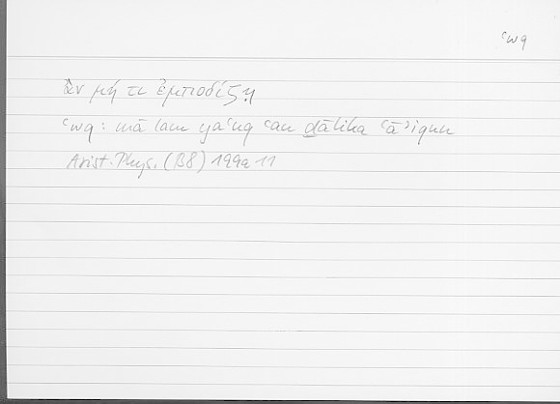 ʿwq
ἂν μή τι ἐμποδίζῃ
ʿwq : mā lam yaʿuq ʿan ḏālika ʿāʾiqun
Arist. Phys. (B8) 199a 11